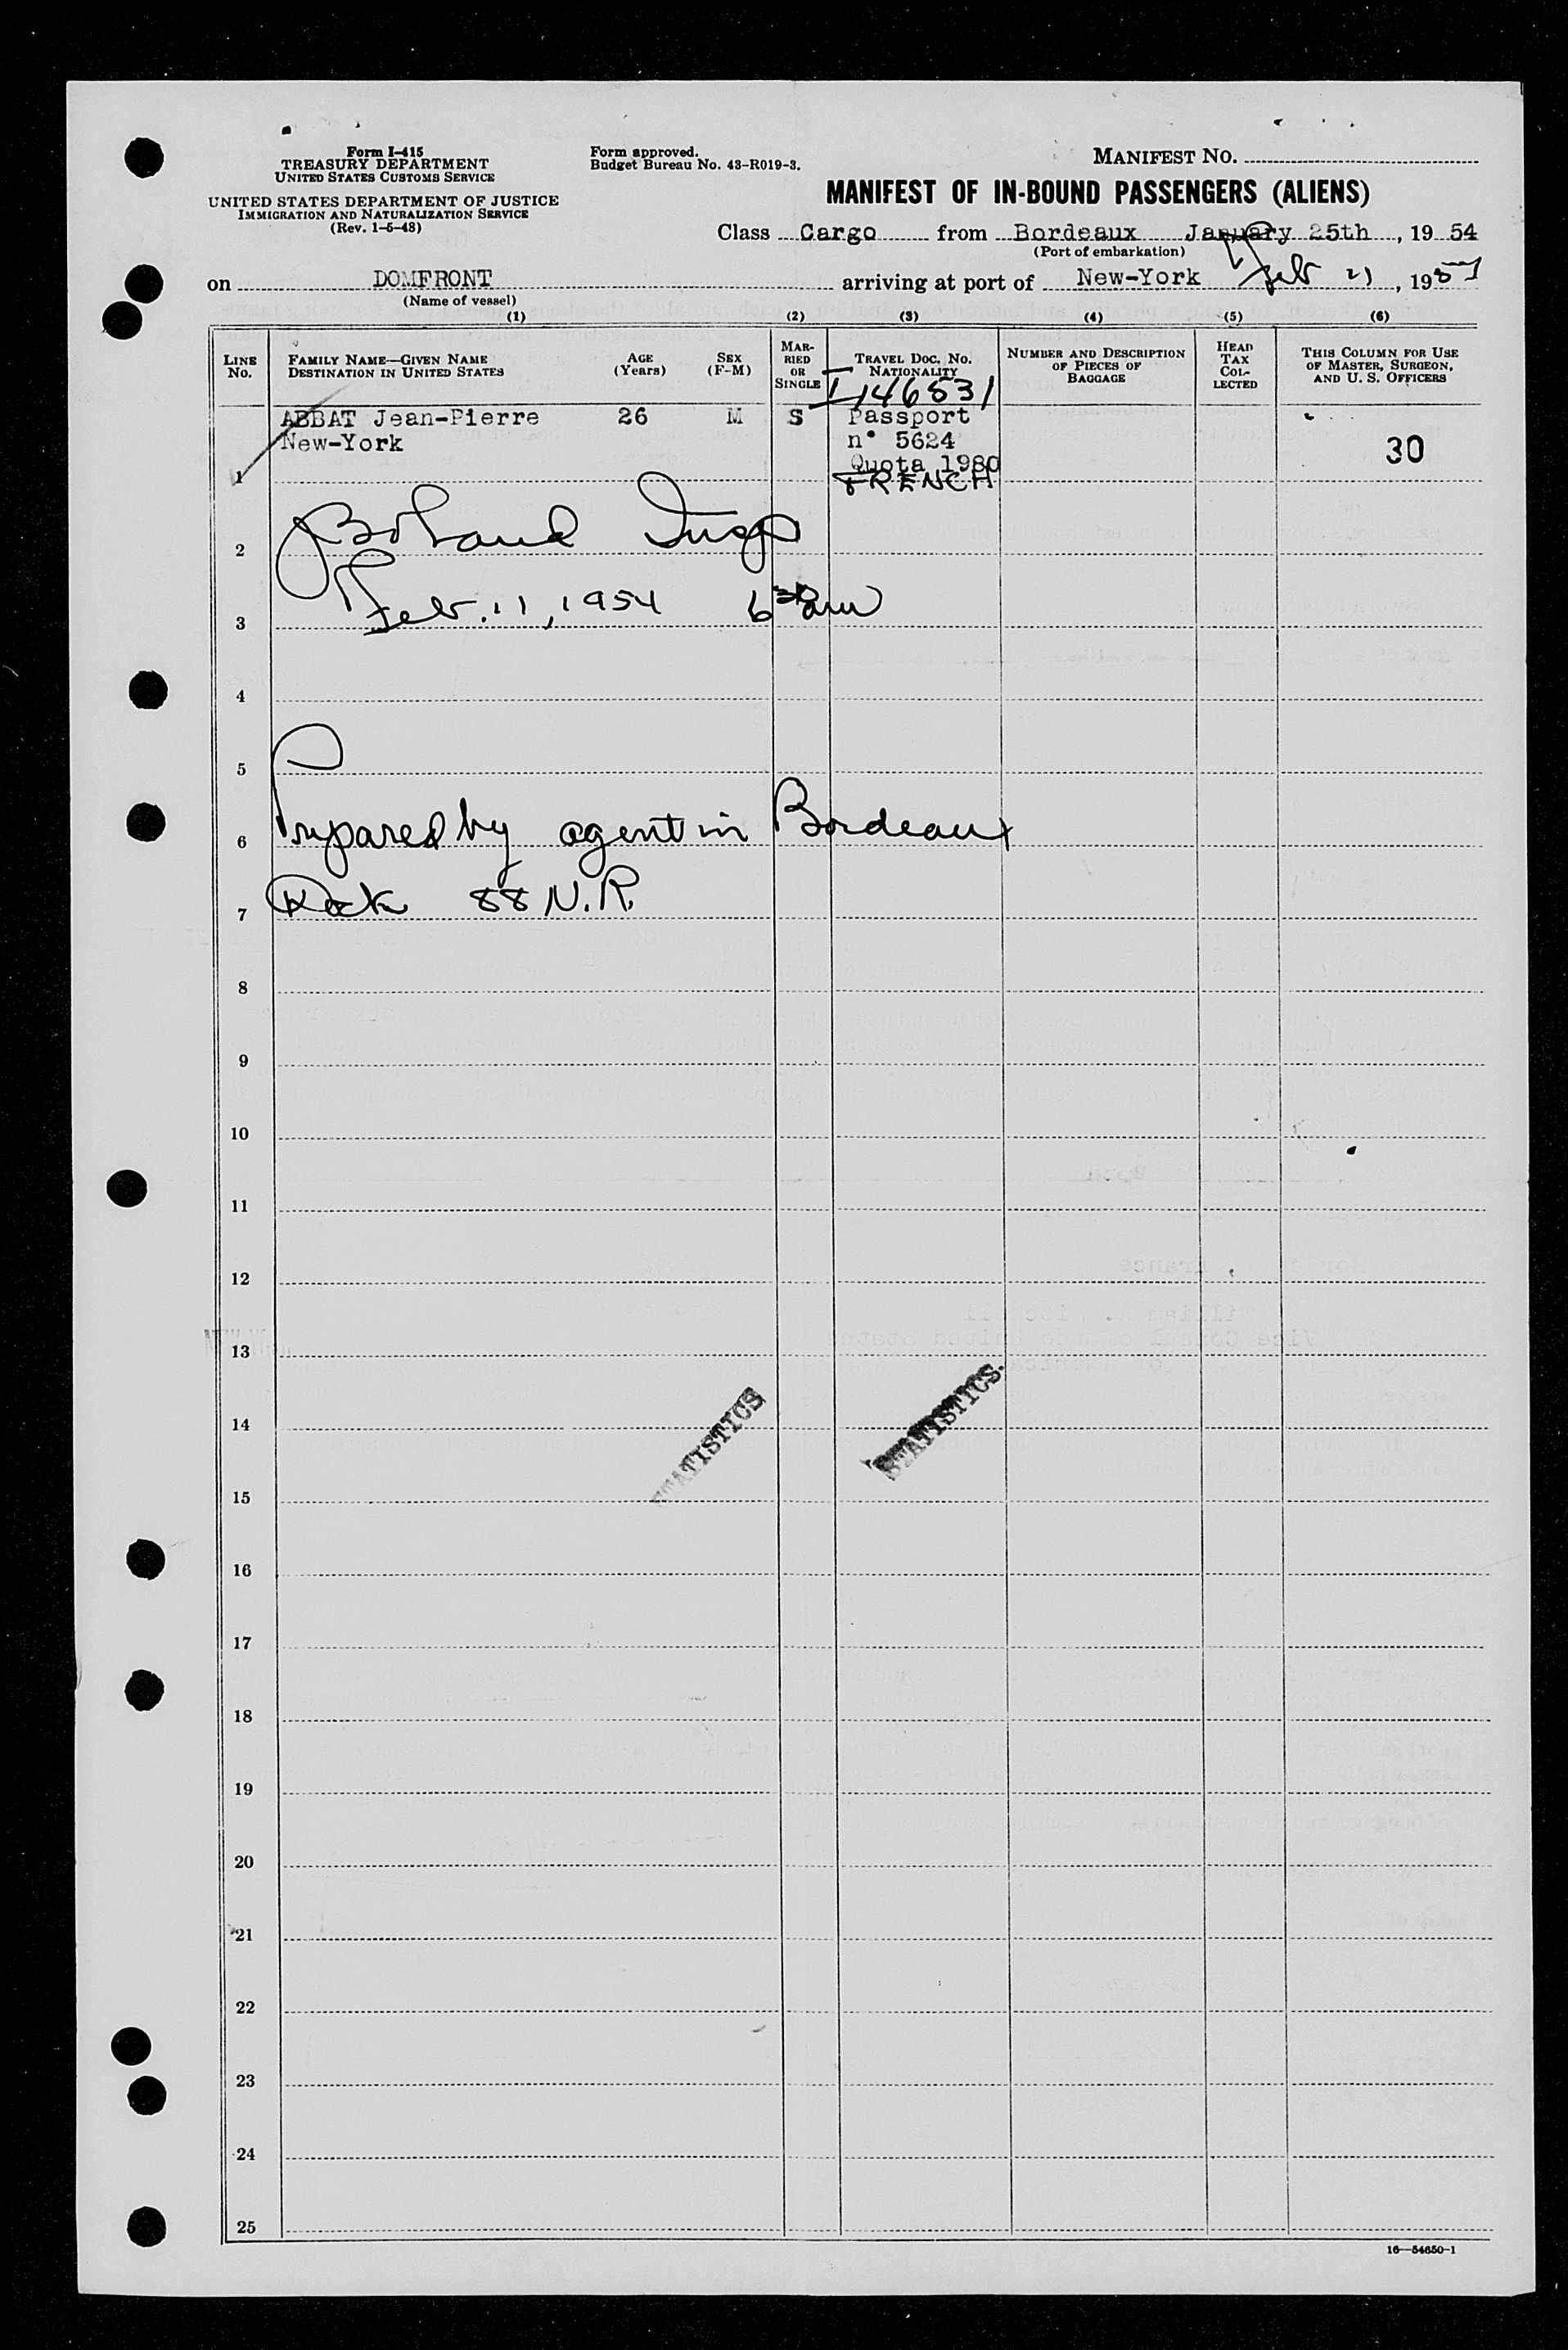 Form I-415
TREASURY DEPARTMENT
UNITED STATES CUSTOMS SERVICE
UNITED STATES DEPARTMENT OF JUSTICE
IMMIGRATION AND NATURALIZATION SERVICE
(Rev. 1-5-48)
Form approved.
Budget Bureau No. 43-R019-3.
MANIFEST NO.
MANIFEST OF IN-BOUND PASSENGERS (ALIENS)
Class Cargo from Bordeaux January 25th, 1954
(Port of embarkation)
on DOMFRONT arriving at port of New-York Feb 1954
(Name of vessel)
(1) (2) (3) (4) (5) (6)
LINE No.
FAMILY NAME—GIVEN NAME
DESTINATION IN UNITED STATES
AGE (Years)
SEX (F-M)
MARRIED OR SINGLE
TRAVEL DOC. NO.
NATIONALITY
NUMBER AND DESCRIPTION OF PIECES OF BAGGAGE
HEAD TAX COLLECTED
THIS COLUMN FOR USE OF MASTER, SURGEON, AND U. S. OFFICERS
I 146531
ABBAT Jean-Pierre 26 M S Passport
New-York n° 5624
30
Quota 1980
1 FRENCH
2
3 Feb. 11, 1954 6 30 am
4
5
6 Prepared by agent in Bordeaux
7 88 N.R.
8
9
10
11
12
13
14
STATISTICS
STATISTICS.
15
16
17
18
19
20
21
22
23
24
25
16—54650-1